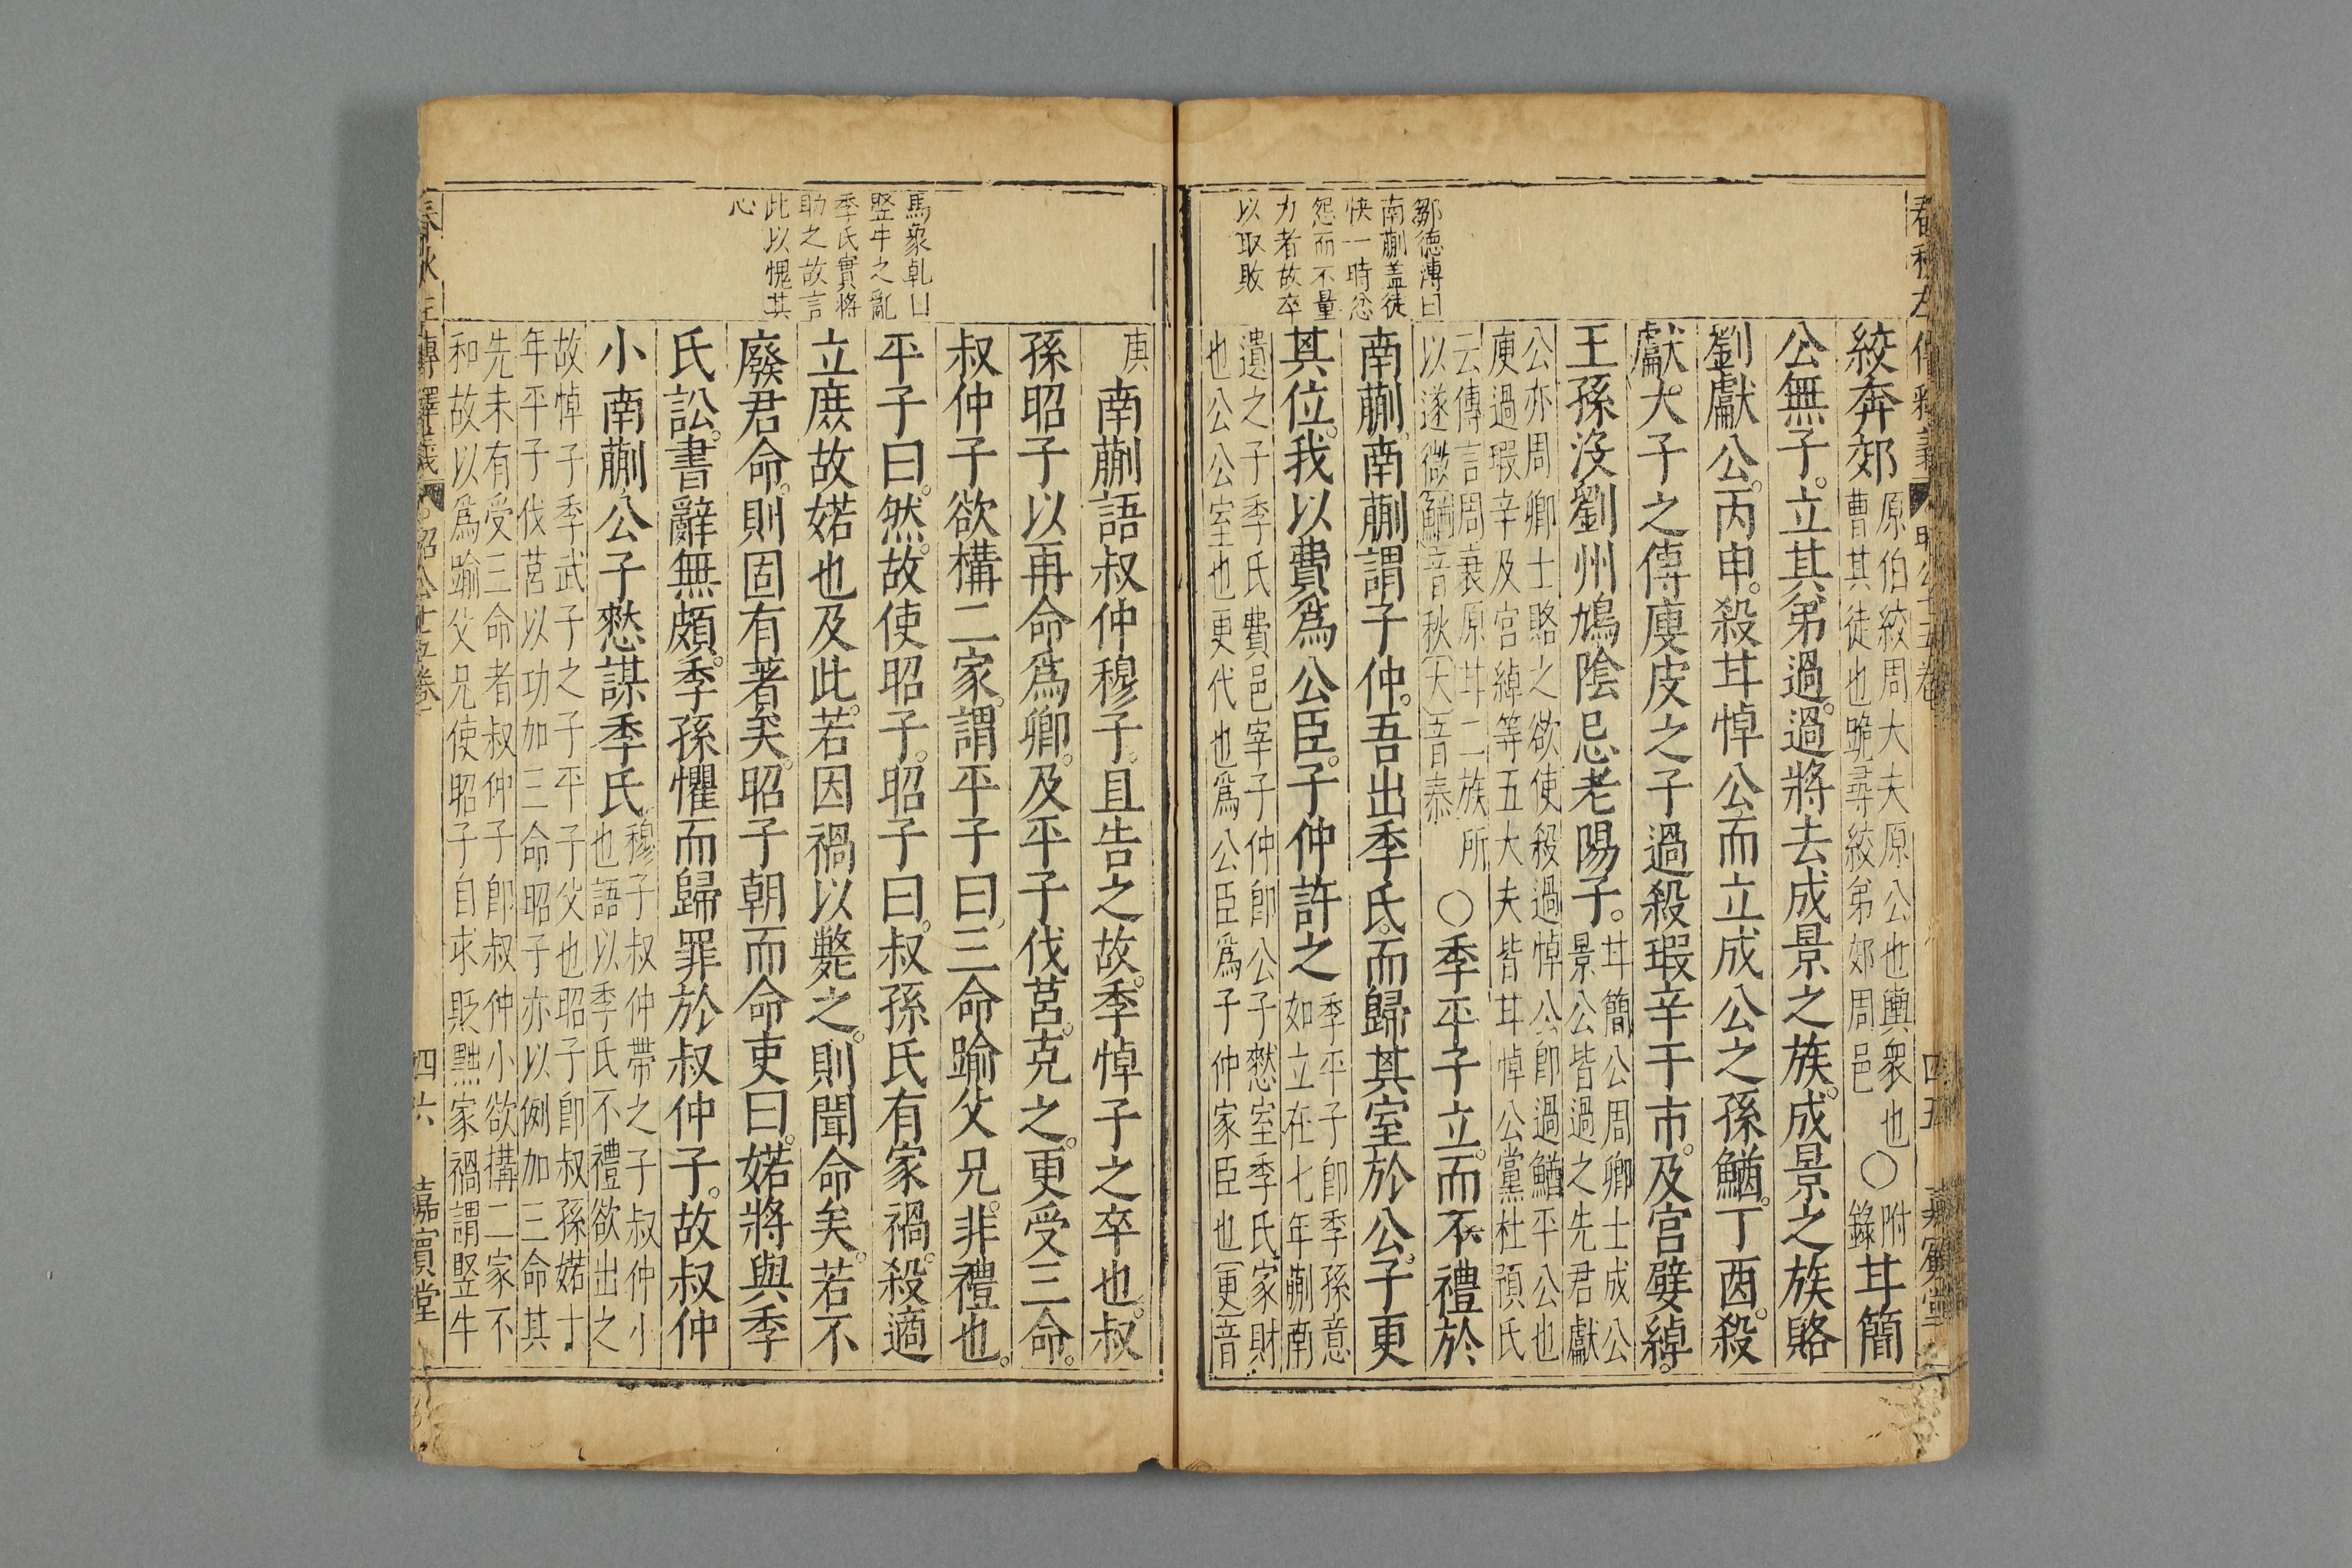 鄒德溥曰
南蒯蓋徒
快一時忿
怨而不量
力者故卒
以取敗
絞奔郊原伯絞周大夫原公也輿衆也
曹其徒也跪尋絞弟郊周邑○附
錄甘簡
公無子。立其弟過。過將去成景之族。成景之族賂
劉獻公。丙申。殺甘悼公而立成公之孫鰌。丁酉。殺
獻大子之傅庾皮之子過殺瑕辛于市。及宮嬖綽。
王孫沒劉州鳩陰忌老陽子。甘簡公周卿士成公
景公皆過之先君獻
公亦周卿士賂之欲使殺過悼公卽過鰌平公也
庾過瑕辛及宮綽等五大夫皆甘悼公黨杜預氏
云傳言周衰原甘二族所
以遂微鰌音秋大音泰○季平子立。而不禮於
南蒯。南蒯謂子仲。吾出季氏。而歸其室於公。子更
其位。我以費爲公臣。子仲許之季平子卽季孫意
如立在七年蒯南
遺之子季氏費邑宰子仲卽公子憖室季氏家財
也公公室也更代也爲公臣爲子仲家臣也更音
馬象乾曰
竪牛之亂
季氏實將
助之故言
此以愧其
心
庚南蒯語叔仲穆子。且告之故。季悼子之卒也。叔
孫昭子以再命爲卿。及平子伐莒。克之。更受三命。
叔仲子欲構二家。謂平子曰。三命踰父兄。非禮也。
平子曰。然。故使昭子。昭子曰。叔孫氏有家禍。殺適
立庶故婼也及此。若因禍以斃之。則聞命矣。若不
廢君命。則固有著矣。昭子朝而命吏曰。婼將與季
氏訟。書辭無頗。季孫懼而歸罪於叔仲子。故叔仲
小南蒯公子憖謀季氏穆子叔仲帶之子叔仲小
也語以季氏不禮欲出之
故悼子季武子之子平子父也昭子卽叔孫婼十
年平子伐莒以功加三命昭子亦以例加三命其
先未有受三命者叔仲子卽叔仲小欲搆二家不
和故以爲踰父兄使昭子自求貶黜家禍謂竪牛
四六 嘉賓堂